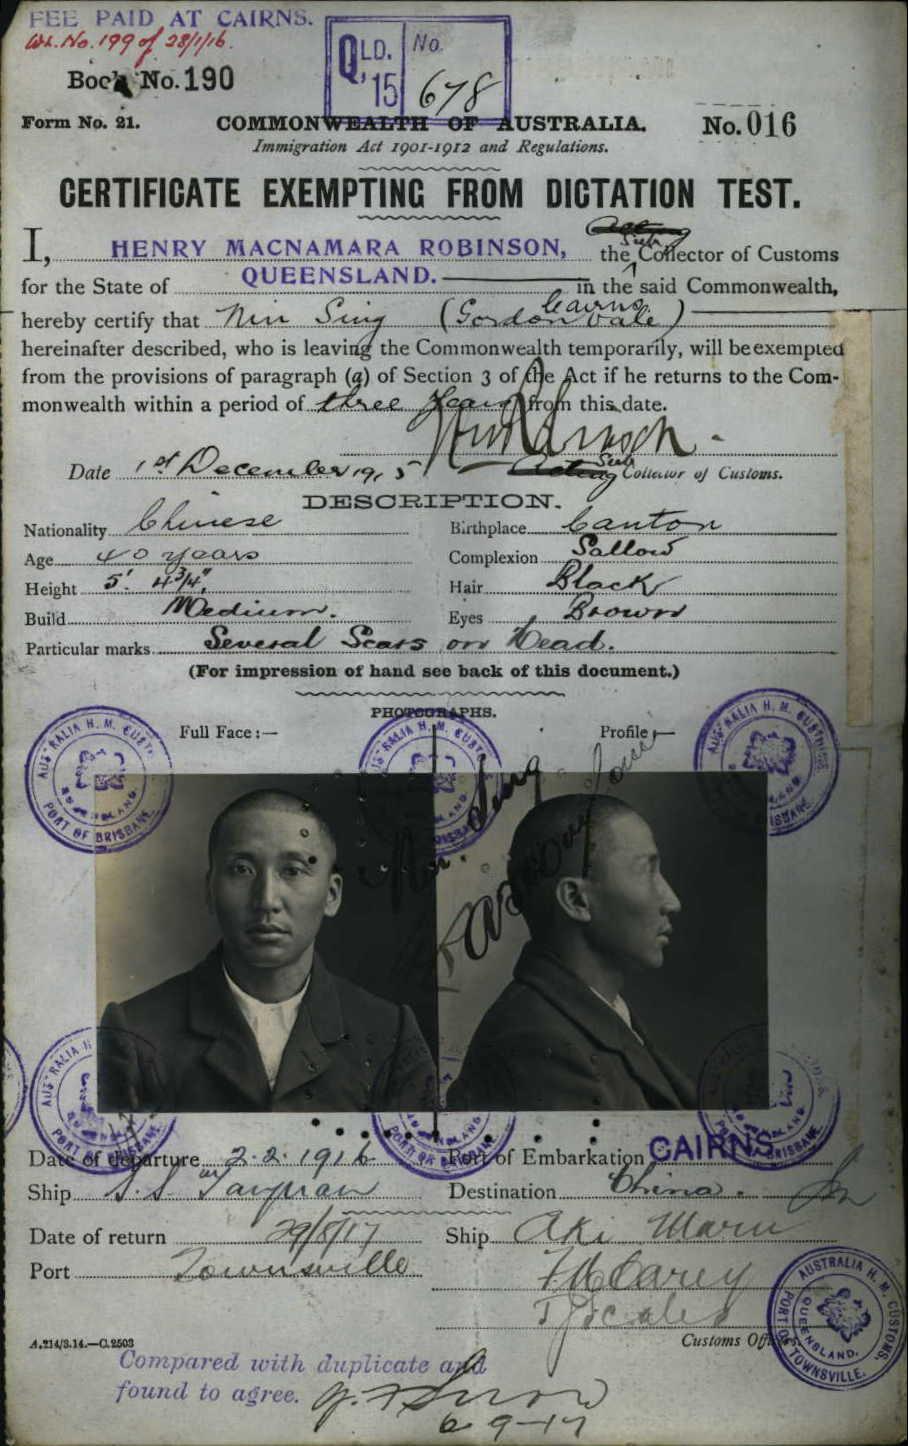 FEE PAID AT CAIRNS.
No. 199 of 28/1/16.
QLD. '15 No. 678
Book No. 190
Form No. 21. COMMONWEALTH OF AUSTRALIA. No. 016
Immigration Act 1901-1912 and Regulations.
CERTIFICATE EXEMPTING FROM DICTATION TEST.
I, HENRY MACNAMARA ROBINSON, the Sub Collector of Customs
for the State of QUEENSLAND. in the said Commonwealth,
Cairns
hereby certify that Nin Sing (Gordon Vale)
hereinafter described, who is leaving the Commonwealth temporarily, will be exempted
from the provisions of paragraph (a) of Section 3 of the Act if he returns to the Com-
monwealth within a period of three years from this date.
Date 1st December 1915 Acting Sub Collector of Customs.
DESCRIPTION.
Nationality Chinese Birthplace Canton
Age 40 years Complexion Sallow
Height 5' 4 3/4" Hair Black
Build Medium. Eyes Brown
Particular marks Several Scars on Head.
(For impression of hand see back of this document.)
PHOTOGRAPHS.
Full Face :— Profile :—
AUSTRALIA H. M. CUSTOMS
QUEENSLAND
PORT OF BRISBANE
Nin Sing
Date of departure 2.2.1916 Port of Embarkation CAIRNS
Ship S.S. Taiyuan Destination China.
Date of return 29/8/17 Ship Aki Maru
Port Townsville
AUSTRALIA H. M. CUSTOMS.
QUEENSLAND.
PORT OF TOWNSVILLE.
A.214/3.14.—C.2503 Customs Officers.
Compared with duplicate and
found to agree.
6-9-17